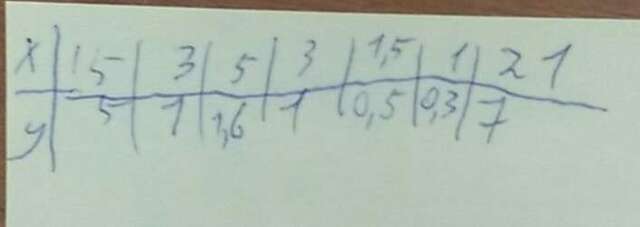 x | 15 | 3 | 5 | 3 | 1,5 | 1 | 21
y | 5 | 1 | 1,6 | 1 | 0,5 | 0,3 | 7